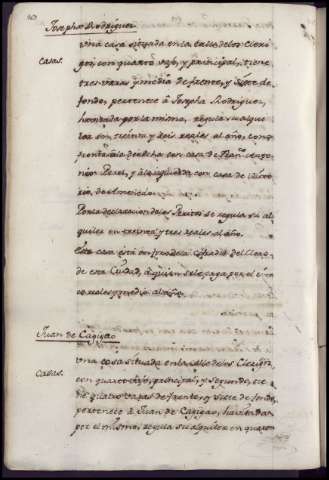 Josepha Rodriguez
Una casa situada en la calle de los Cierig
Casas.
gos, con quarto vajo, y principal, tiene
tres varas y media de frente, y siete de
fondo, pertenece à Josepha Rodriguez,
havitada por la misma, regula su alqui
ler son treinta y seis reales al año, con
por la derecha con casa de
Perez, y à la izquierda con casa de
Por la declaracion de los Peritos se regula su al
quiler en treinta y tres reales al año.
Esta casa està
de esta Ciudad, à quien se le paga por el
reales y medio al año.
Juan de Cagigao
Una casa situada en la calle de los Clerig
Casas.
con quarto vajo, principal, y segundo, tie
ne quatro varas de frente, y siete de fondo,
pertenece à Juan de Cagigao, havitada
por el mismo, regula su alquiler en quaren